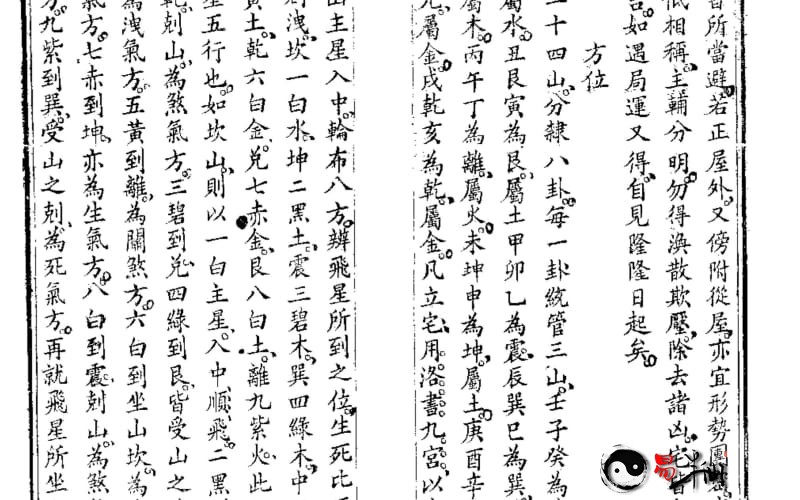 所當避若正屋外又傍附從屋亦宜形勢團
低相稱主輔分明勿得渙散欺壓除去諸凶宅
如遇局運又得自見隆隆日起矣
方位
二十四山分隸八卦每一卦統管三山壬子癸為
屬水丑艮寅為艮屬土甲卯乙為震辰巽巳為巽
屬木丙午丁為離屬火未坤申為坤屬土庚酉辛
屬金戌乾亥為乾屬金凡立宅用洛書九宮以
山主星入中輪布八方辨飛星所到之位生死比
洩坎一白水坤二黑土震三碧木巽四綠木中
黃土乾六白金兌七赤金艮八白土離九紫火此
星五行也如坎山則以一白主星入中順飛二黑
乾剋山為煞氣方三碧到兌四綠到艮皆受山之
為洩氣方五黃到離為關煞方六白到坐山坎為
氣方七赤到坤亦為生氣方八白到震剋山為煞
方九紫到巽受山之剋為死氣方再就飛星所坐
易